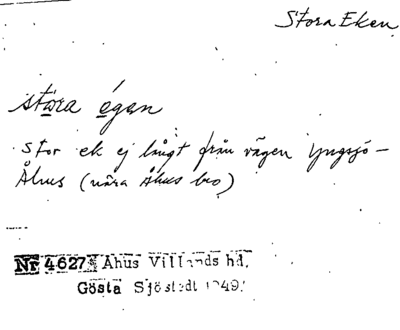 Stora Eken
stora égan
Stor ek ej långt från vägen Yngsjö –
Åhus (nära Åhus bro)
Nr 4627 Åhus Villands hd.
Gösta Sjöstedt 1949.